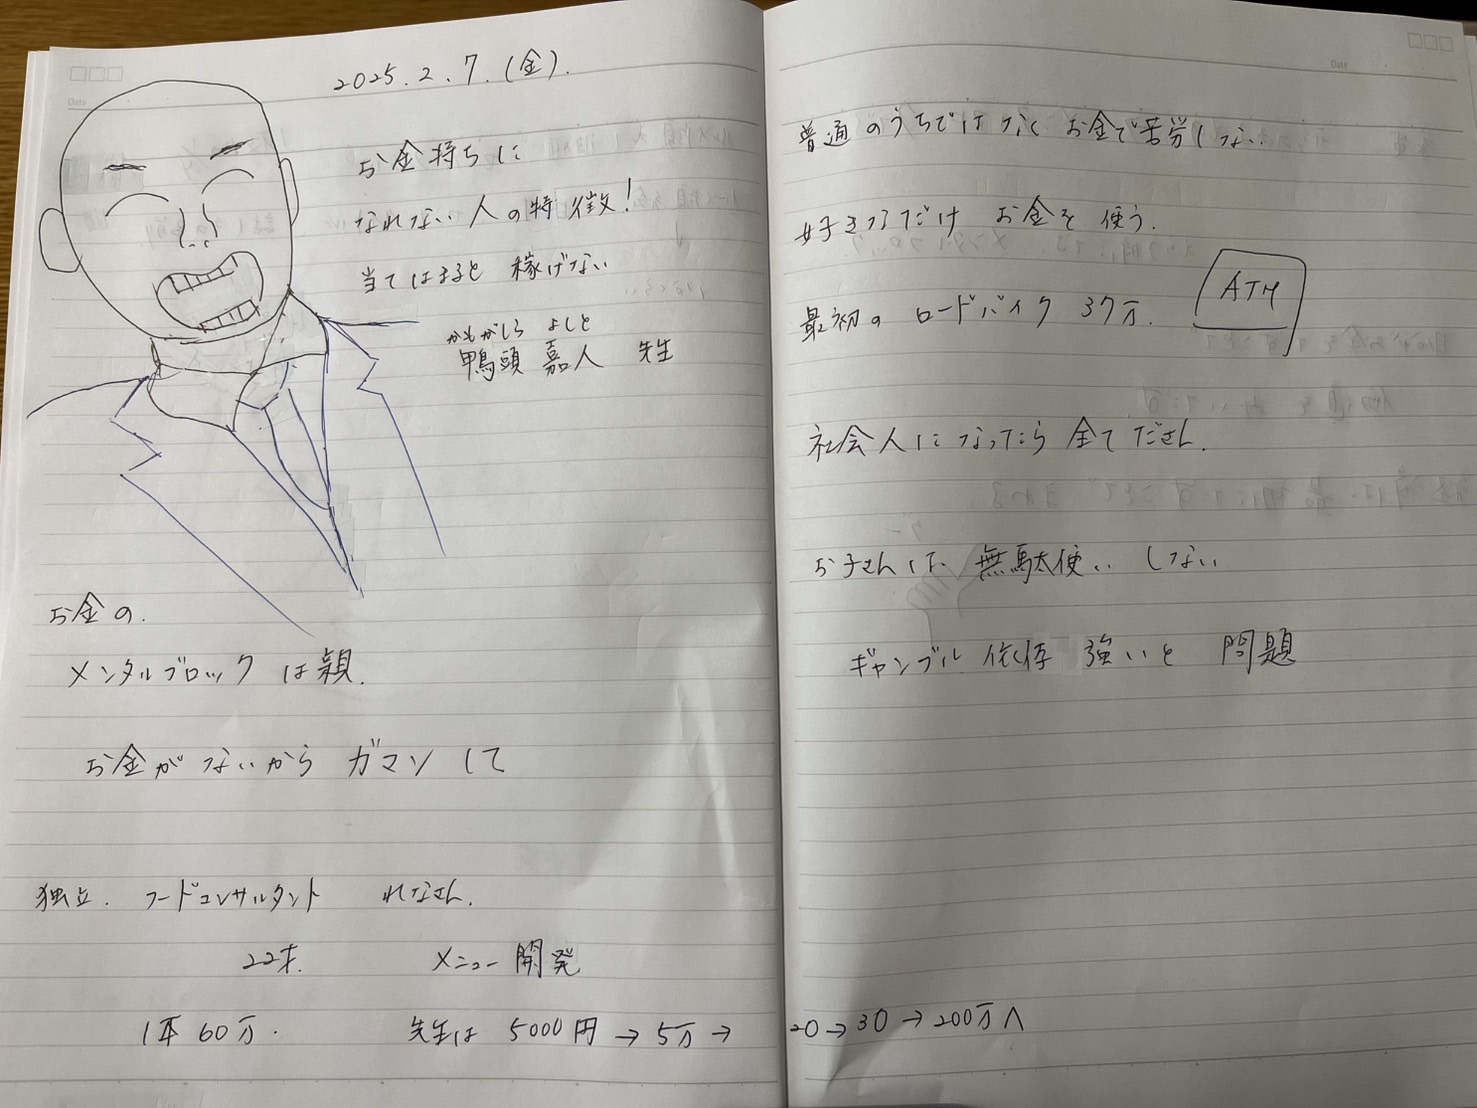 2025.2.7.(金).
お金持ちに
なれない人の特徴!
当てはまると 稼げない
かもがしら よしと
鴨頭 嘉人 先生
お金の.
メンタルブロックは親.
お金がないから ガマンして
独立. フードコンサルタント れなさん.
22才. メニュー開発
1本 60万. 先生は 5000円 → 5万 → 20 → 30 → 200万へ
Date
普通のうちではなく お金で苦労しない
好きなだけ お金を使う.
最初の ロードバイク 37万.
ATM
社会人になったら 全て ださん.
お子さんは 無駄使い しない
ギャンブル 依存 強いと 問題